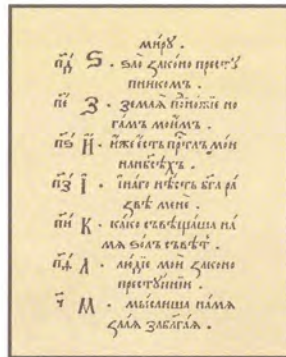 миру .
п҃д Ѕ . ѕло̀ законо престу
пникомъ .
п҃е З . землѧ подножїе но
гама моима .
п҃ѕ И . иже есть прⷭ҇тлъ мои
на нб҃сѣхъ .
п҃з І . инаго нѣсть бг҃а ра
звѣ мене .
п҃и К . како съвѣщаша на
мѧ ѕолъ съвѣтъ .
Л . людїе мои законо
преступнїи .
ч҃ М . мыслиша на мѧ
злаѧ за благаѧ .